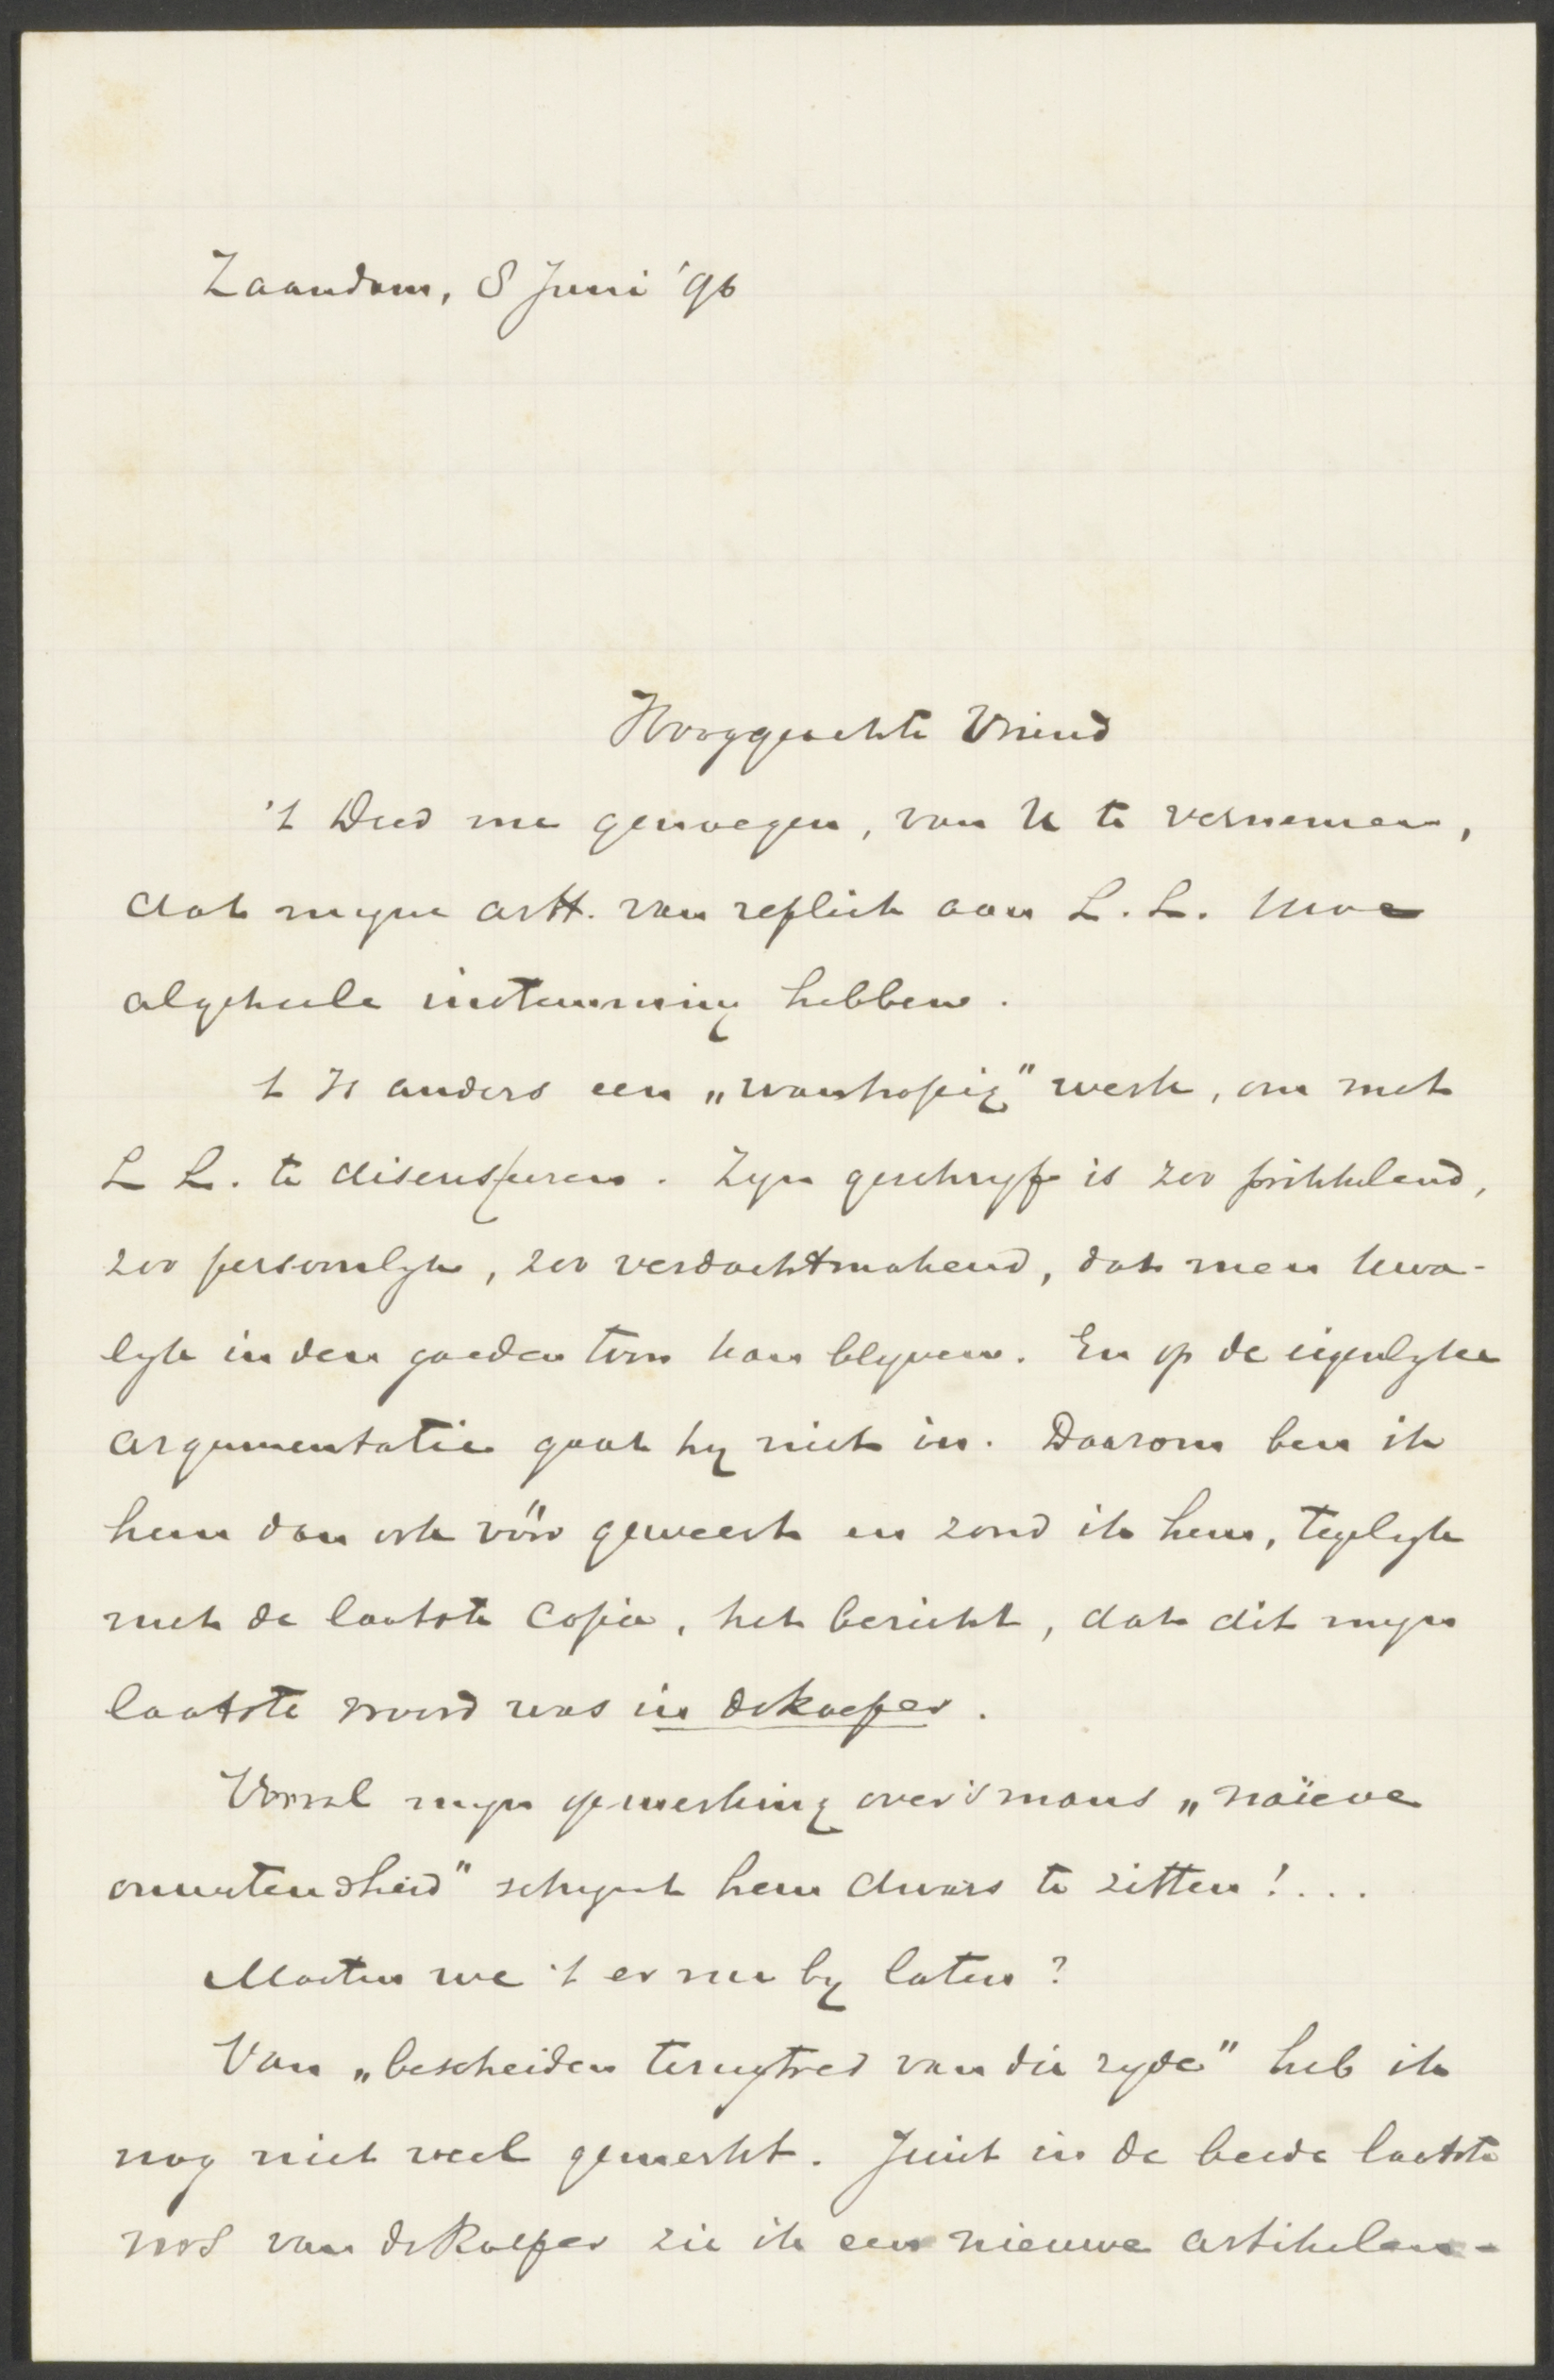 Zaandam, 8 Juni '96
Hooggeachte Vriend
't Deed me genoegen, van U te vernemen,
dat myne artt. van repliek aan L. L. Uwe
algeheele instemming hebben.
t Is anders een „wanhopig" werk, om met
L L. te discussieeren. Zyn geschryf is zoo prikkelend,
zoo persoonlyk, zoo verdachtmakend, dat men kwa-
lyk in den goeden toon kan blyven. En op de eigenlyke
argumentatie gaat hy niet in. Daarom ben ik
hem dan ook vóór geweest en zond ik hem, tegelyk
met de laatste copie, het bericht, dat dit myn
laatste woord was in de Roeper.
Vooral myn opmerking over 's mans „naïeve
onwetendheid" schynt hem dwars te zitten!...
Moeten we 't er nu by laten?
Van „bescheiden terugtred van die zyde" heb ik
nog niet veel gemerkt. Juist in de beide laatste
nos van de Roeper zie ik een nieuwe artikelen-